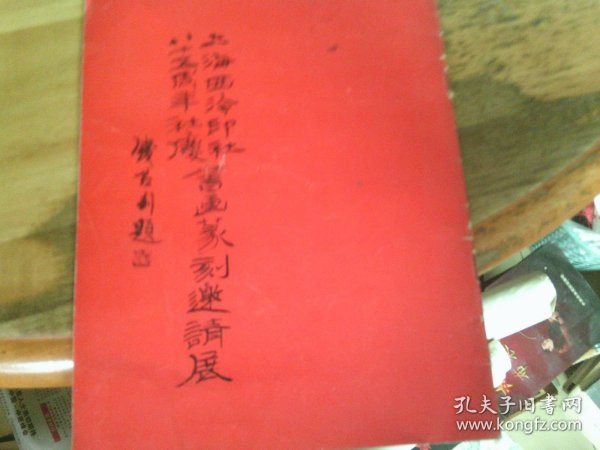 上海西泠印社
八十五周年社慶
書画篆刻邀請展
錢君匋題
孔夫子旧书网
www.kongfz.com